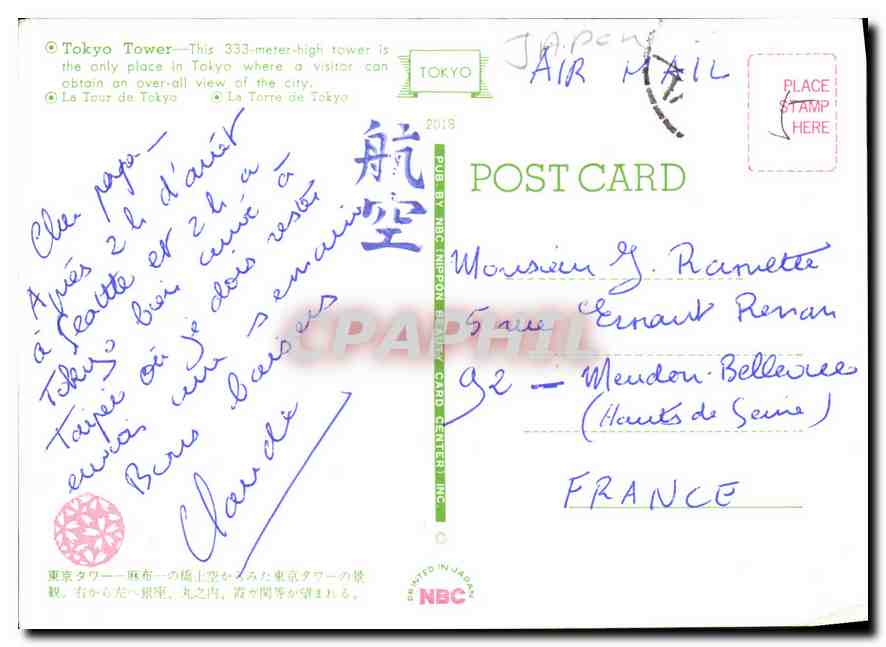 Tokyo Tower—This 333-meter-high tower is
the only place in Tokyo where a visitor can
obtain an over-all view of the city.
La Tour de Tokyo La Torre de Tokyo
TOKYO
2018
JAPON
AIR MAIL
PLACE
STAMP
HERE
航空
POST CARD
Cher papa—
Après 2h d'arrêt
à Seattle et 2h à
Tokyo bien arrivé à
Taipei où je dois rester
environ une semaine
Bons baisers
Claude
PUB. BY NBC (NIPPON BEAUTY CARD CENTER) INC.
Monsieur J. Ramette
5 rue Ernest Renan
92 — Meudon-Bellevue
(Hauts de Seine)
FRANCE
CPAPHIL
東京タワー—麻布一の橋上空からみた東京タワーの景
観。右から左へ銀座、丸之内、霞が関等が望まれる。
©
PRINTED IN JAPAN
NBC